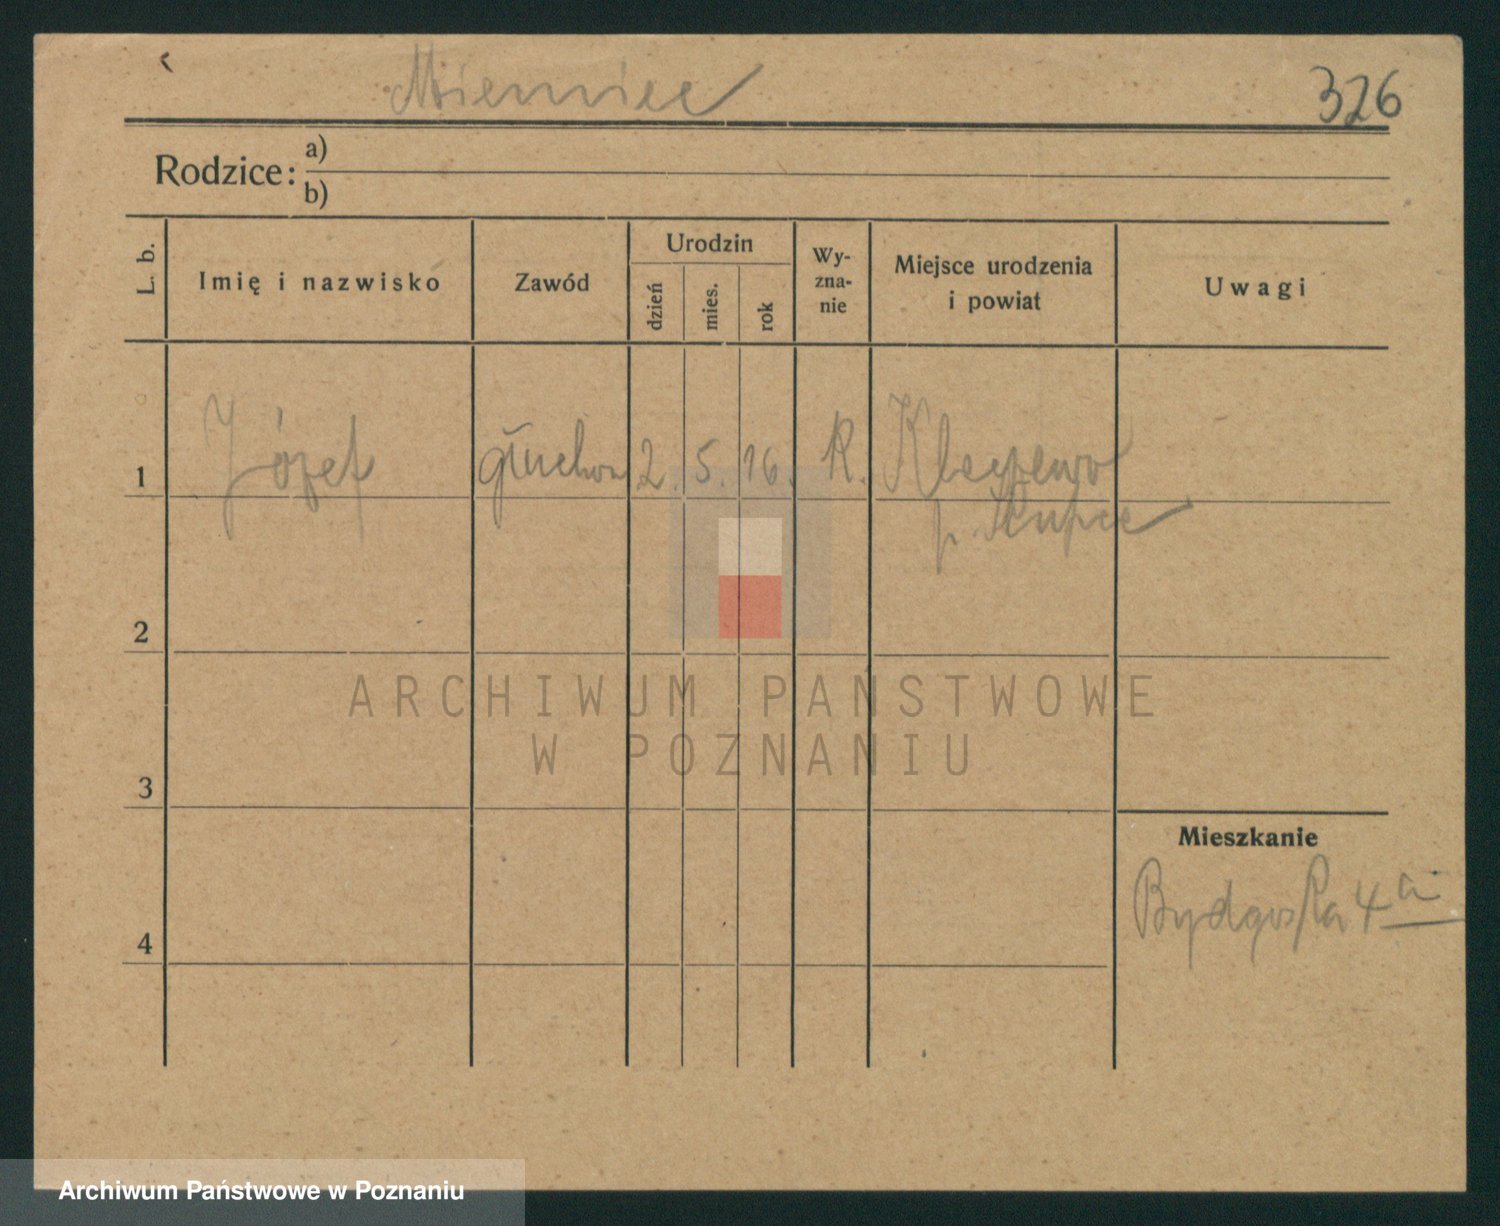 Mienniec
326
Rodzice: a)
b)
L. b.
Imię i nazwisko
Zawód
Urodzin
dzień
mies.
rok
Wy-
zna-
nie
Miejsce urodzenia
i powiat
Uwagi
1 Józef 2. 5. 16. R.
p. Słupca
2
3
4
Mieszkanie
Bydgoska 4
ARCHIWUM PAŃSTWOWE
W POZNANIU
Archiwum Państwowe w Poznaniu